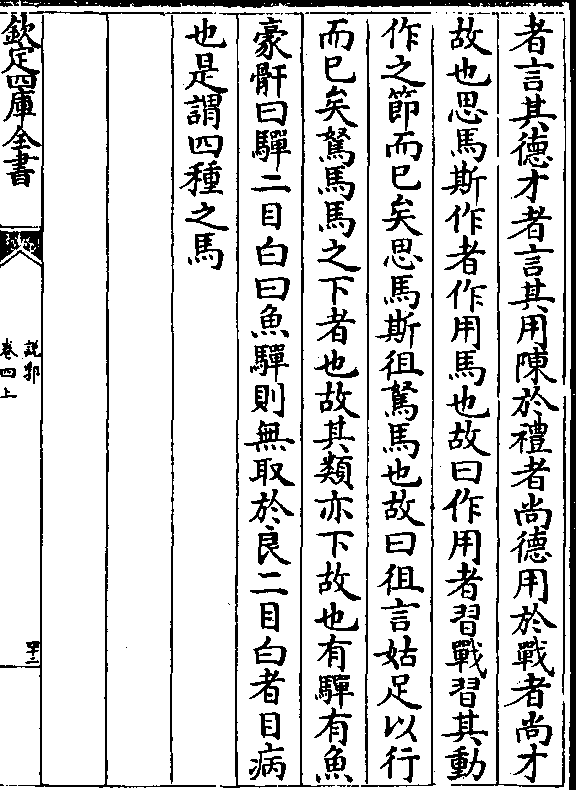 者言其德才者言其用陳於禮者尚德用於戰者尚才
故也思馬斯作者作用馬也故曰作用者習戰習其動
作之節而已矣思馬斯徂駑馬也故曰徂言姑足以行
而已矣駑馬馬之下者也故其類亦下故也有驒有魚
豪骭曰驒二目白曰魚驒則無取於良二目白者目病
也是謂四種之馬
欽定四庫全書
說郛
卷四上
四十二